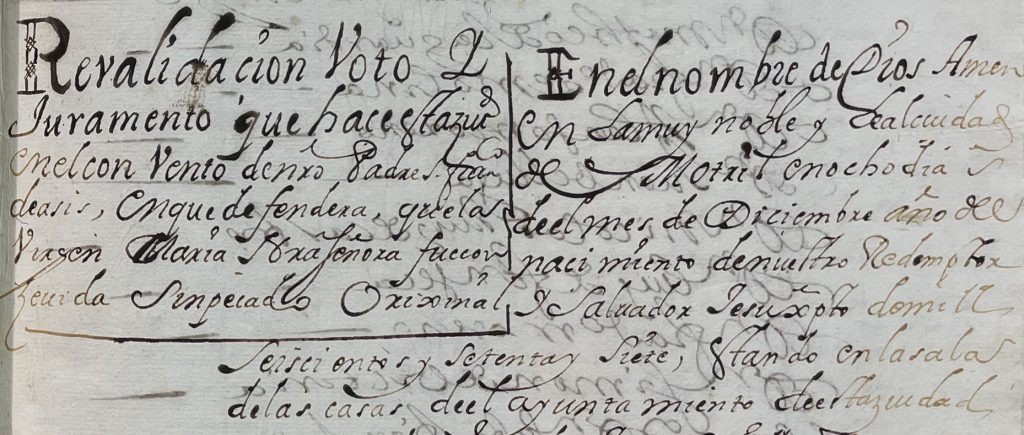 Revalidaçion Voto Y
Juramento que hace estaziud
en el con Vento de nro Padre Sn franco
de asis, en que defendera, que la s
Virxen Maria Nra señora fue con
zeuida Sin pecado Orixinal
En el nombre de Dios Amen
en La muy noble y Leal ciudad
de Motril en ocho dia s
de el mes de Diciembre año del
nacimiento de nuestro Redemptor
Y Salvador Jesuxpto de mill
seiscientos y setenta y siete, estando en las salas
de las casas de el ayuntamiento de esta ziudad